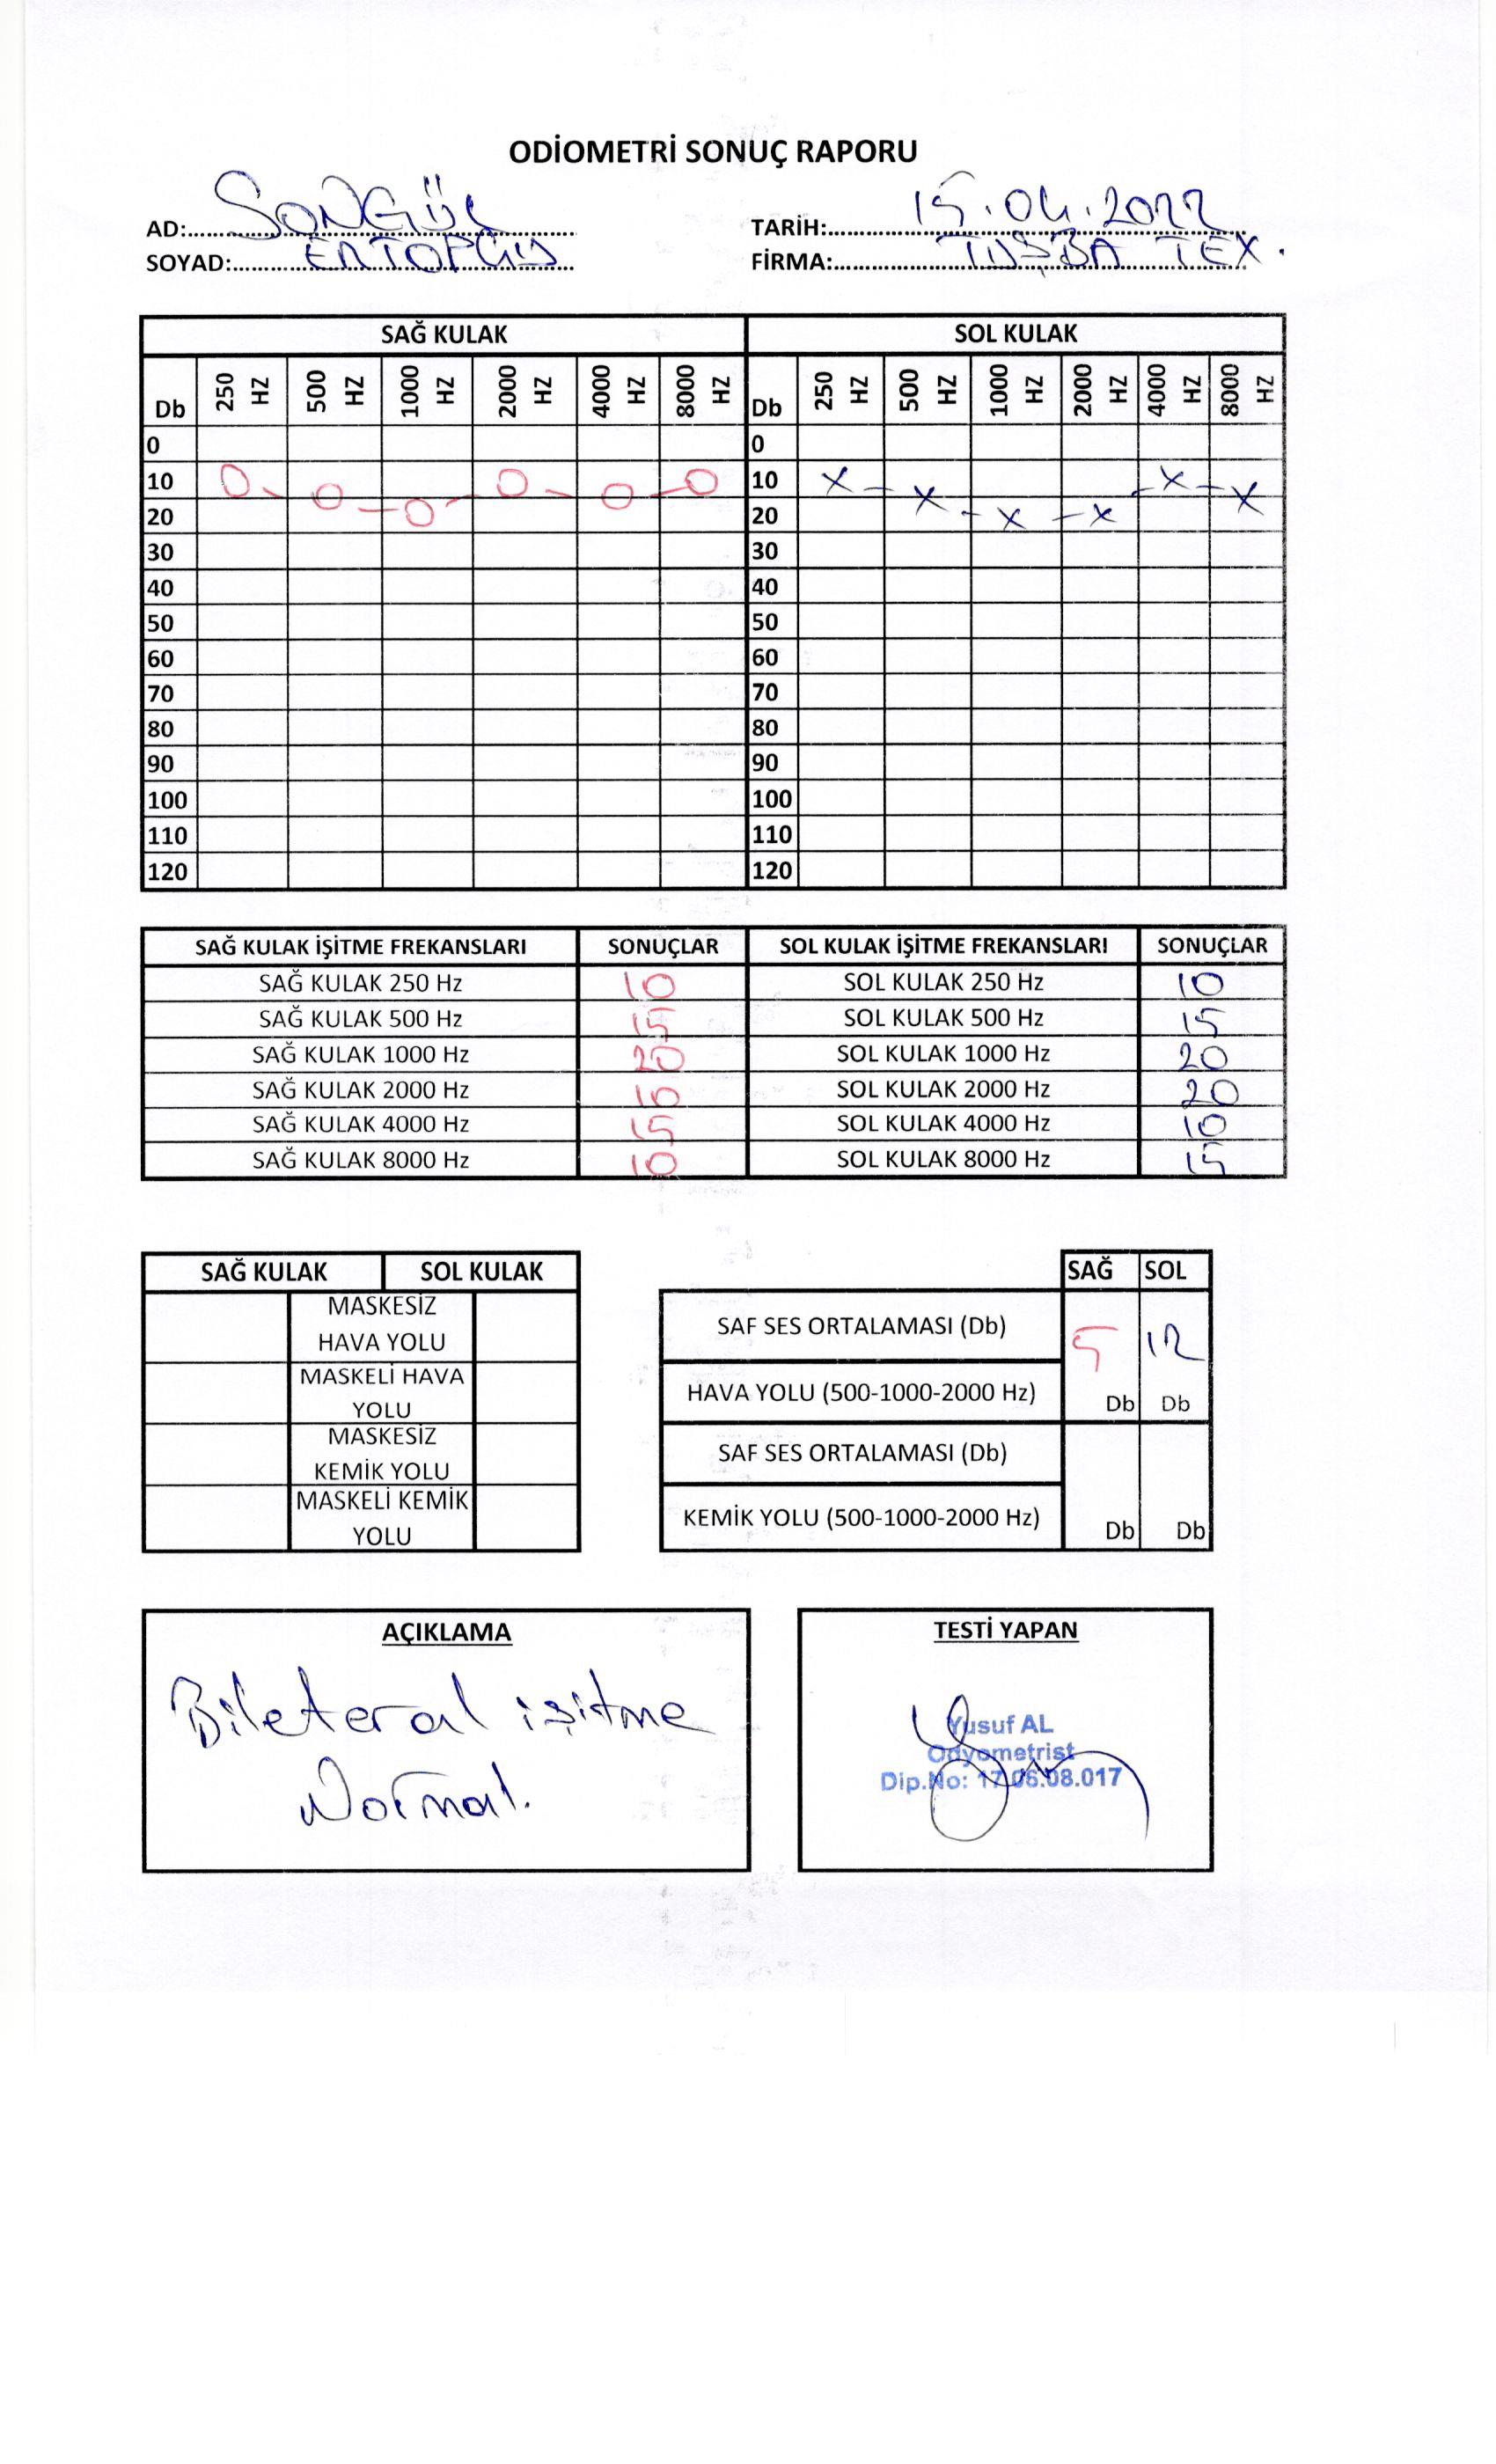 ODİOMETRİ SONUÇ RAPORU
AD: SONGÜL TARİH: 15.04.2022
SOYAD: FİRMA: TUŞBA TEX.
SAĞ KULAK SOL KULAK
Db 250 HZ 500 HZ 1000 HZ 2000 HZ 4000 HZ 8000 HZ Db 250 HZ 500 HZ 1000 HZ 2000 HZ 4000 HZ 8000 HZ
0 0
10 10
20 20
30 30
40 40
50 50
60 60
70 70
80 80
90 90
100 100
110 110
120 120
SAĞ KULAK İŞİTME FREKANSLARI SONUÇLAR SOL KULAK İŞİTME FREKANSLARI SONUÇLAR
SAĞ KULAK 250 Hz 10 SOL KULAK 250 Hz 10
SAĞ KULAK 500 Hz 15 SOL KULAK 500 Hz 15
SAĞ KULAK 1000 Hz 20 SOL KULAK 1000 Hz 20
SAĞ KULAK 2000 Hz 10 SOL KULAK 2000 Hz 20
SAĞ KULAK 4000 Hz 15 SOL KULAK 4000 Hz 10
SAĞ KULAK 8000 Hz 10 SOL KULAK 8000 Hz 15
SAĞ KULAK SOL KULAK
MASKESİZ
HAVA YOLU
MASKELİ HAVA
YOLU
MASKESİZ
KEMİK YOLU
MASKELİ KEMİK
YOLU
SAĞ SOL
SAF SES ORTALAMASI (Db) 5 12
HAVA YOLU (500-1000-2000 Hz) Db Db
SAF SES ORTALAMASI (Db)
KEMİK YOLU (500-1000-2000 Hz) Db Db
AÇIKLAMA
Bileteral işitme
Normal.
TESTİ YAPAN
Yusuf AL
Odyometrist
Dip.No: 17.06.08.017